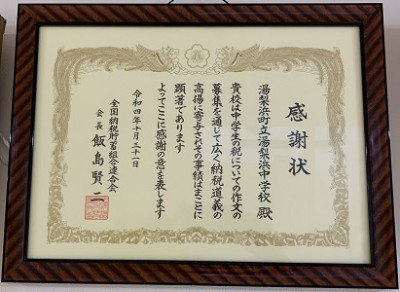 感謝状
湯梨浜町立湯梨浜中学校 殿
貴校は中学生の税についての作文の
募集を通じて広く納税道義の
高揚に寄与されその事績はまことに
顕著であります
よってここに感謝の意を表します
令和四年十月三十一日
全国納税貯蓄組合連合会
会長 飯島賢二